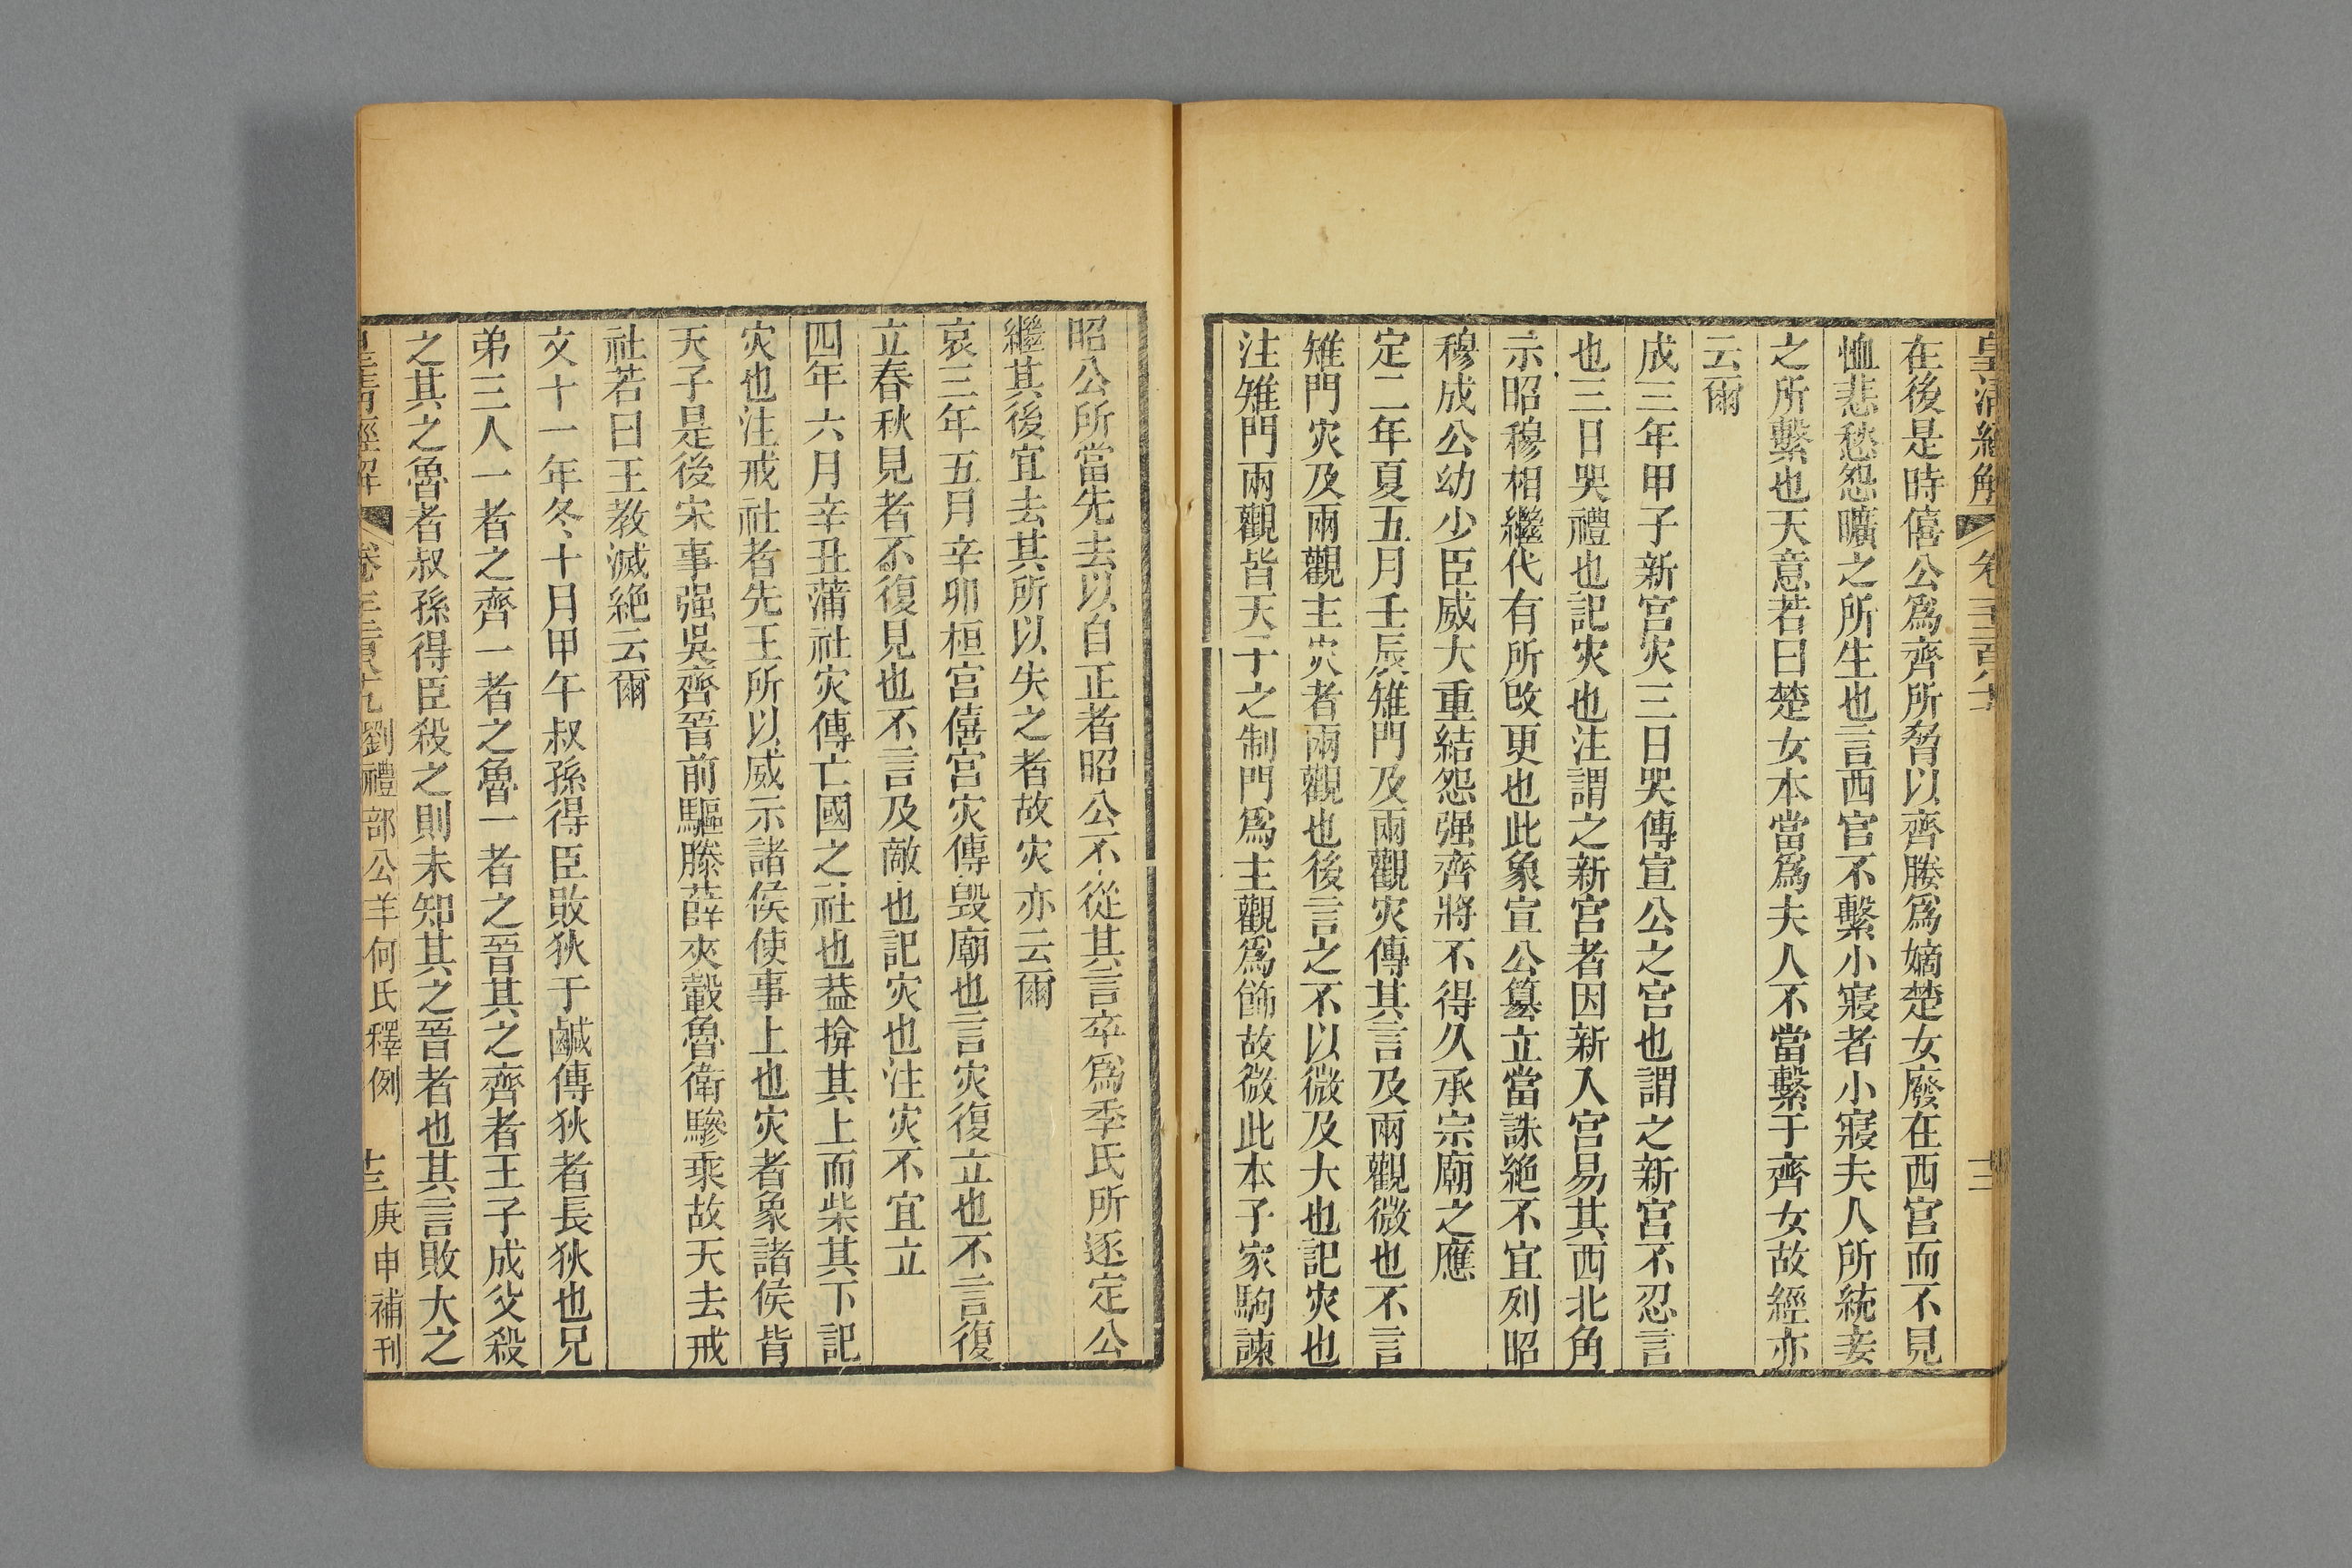 皇清經解
在後是時僖公爲齊所脅以齊媵爲嫡楚女廢在西宮而不見
恤悲愁怨曠之所生也言西宮不繫小寢者小寢夫人所統妾
之所繫也天意若曰楚女本當爲夫人不當繫于齊女故經亦
云爾
成三年甲子新宮灾三日哭傳宣公之宮也謂之新宮不忍言
也三日哭禮也記灾也注謂之新宮者因新入宮易其西北角
示昭穆相繼代有所改更也此象宣公簒立當誅絕不宜列昭
穆成公幼少臣威大重結怨强齊將不得久承宗廟之應
定二年夏五月壬辰雉門及兩觀灾傳其言及兩觀微也不言
雉門灾及兩觀主灾者兩觀也後言之不以微及大也記灾也
注雉門兩觀皆天子之制門爲主觀爲飾故微此本子家駒諫
昭公所當先去以自正者昭公不從其言卒爲季氏所逐定公
繼其後宜去其所以失之者故灾亦云爾
哀三年五月辛卯桓宮僖宮灾傳毀廟也言灾復立也不言復
立春秋見者不復見也不言及敵也記灾也注灾不宜立
四年六月辛丑蒲社灾傳亡國之社也葢揜其上而柴其下記
灾也注戒社者先王所以威示諸侯使事上也灾者象諸侯背
天子是後宋事强吳齊晉前驅滕薛夾轂魯衛驂乘故天去戒
社若曰王教滅絕云爾
文十一年冬十月甲午叔孫得臣敗狄于鹹傳狄者長狄也兄
弟三人一者之齊一者之魯一者之晉其之齊者王子成父殺
之其之魯者叔孫得臣殺之則未知其之晉者也其言敗大之
皇清經解 劉禮部公羊何氏釋例 十三 庚申補刊